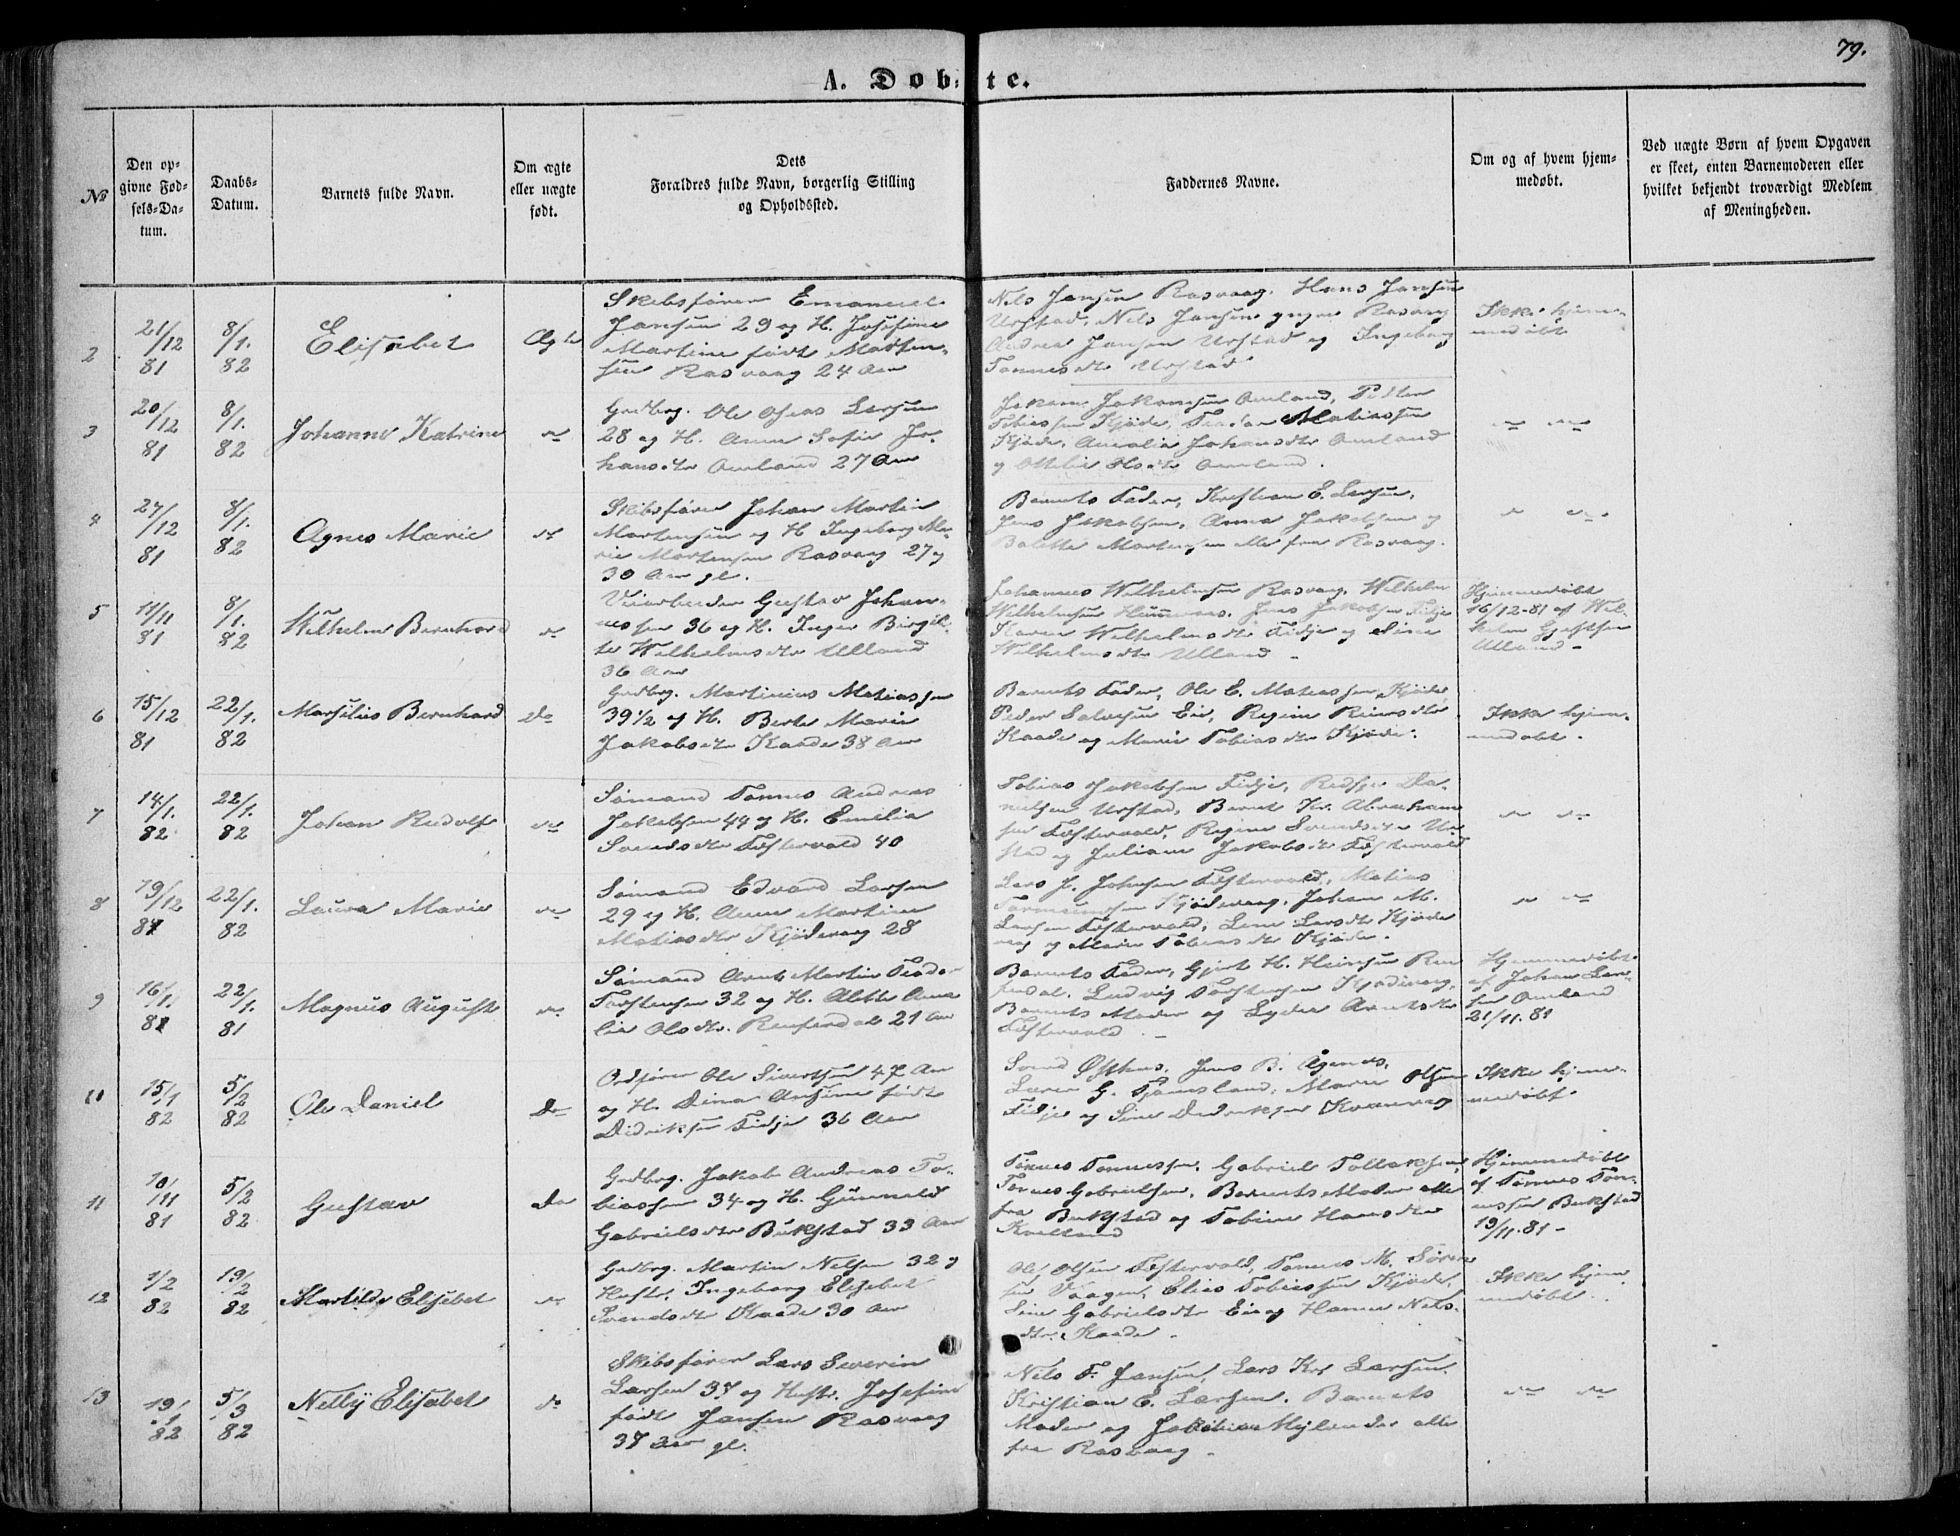 79.
A. Døbte.
№
Den opgivne Fødsels-Datum.
Daabs-Datum.
Barnets fulde Navn.
Om ægte eller uægte født.
Dets Forældres fulde Navn, borgerlig Stilling og Opholdssted.
Faddernes Navne.
Om og af hvem hjemmedøbt.
Ved uægte Børn af hvem Opgaven er skeet, enten Barnemoderen eller hvilket bekjendt troværdigt Medlem af Meningheden.
2
21/12 81
8/1. 82
Elisabet
Ægte
Skibsfører Emanuel
Jansen 29 og H. Josefine
Martine født Morten-
sen Rasvaag 24 Aar
Nils Jansen Rasvaag, Hans Jansen
Urstad, Nils Jansen yngre Rasvaag
Andrea Jansen Urstad og Ingeborg
Tønnesdtr Urstad
Ikke hjem-
medøbt
3
20/12 81
8/1. 82
Johanne Katrine
do
Grdbrg. Ole Oseas Larsen
28 og H. Anne Sofie Jo-
hansdtr Omland 27 Aar
Jakob Jakobsen Omland, Peder
Tobiassen Kjøde, Teodor Matiassen
Kjøde, Amalia Johansdtr Omland
og Ottilie Olsdtr Omland.
do do
4
27/12 81
8/1. 82
Agnes Marie
do
Skibsfører Johan Martin
Mortensen og H. Ingeborg Ma-
rie Mortensen Rasvaag 27 og
30 Aar gl.
Barnets Fader, Kristian E. Larsen,
Jens Jakobsen, Anna Jakobsen og
Bolette Mortensen alle fra Rasvaag.
do do
5
11/11 81
8/1. 82
Wilhelm Bernhard
do
Veiarbeider Gustav Johan-
nesen 36 og H. Inger Birgit-
te Wilhelmsdtr Ulland
36 Aar
Johannes Wilhelmsen Rasvaag, Wilhelm
Wilhelmsen Hummeraas, Jens Jakobsen Fidje
Karen Wilhelmsdtr Fidje og Sine
Wilhelmsdtr Ulland -
Hjemmedøbt
16/12-81 af Wil-
helm Gjertsen
Ulland -
6
15/12 81
22/1. 82
Marselius Bernhard
Do
Grdbrg. Martinius Matiassen
39 1/2 og H. Berte Marie
Jakobsdtr Kaade 38 Aar
Barnets Fader, Ole E. Matiassen Kjøde,
Peder Salvesen Eie, Regine Reiersdtr
Kaade og Marie Tobiasdtr Kjøde.
Ikke hjem-
medøbt.
7
14/1. 82
22/1. 82
Johan Rudolf
do
Sømand Tønnes Andreas
Jakobsen 44 og H. Emilia
Svendsdtr Fæstervold 40
Tobias Jakobsen Fidje, Da-
nielsen Urstad, Bernt Kr. Abraham-
sen Fæstervold, Regine Svendsdtr Ur-
stad og Juliane Jakobsdtr Fæstervold
do do
8
19/12 81
22/1. 82
Laura Marie
do
Sømand Edvard Larsen
29 og H. Anne Martine
Matiasdtr Kjødevaag 28
Lars J. Johnsen Fæstervold, Matias
Tormundsen Kjødevaag, Johan M.
Larsen Fæstervold, Lene Larsdtr Kjøde-
vaag og Marie Tobiasdtr Kjøde.
do do
9
16/1. 81
22/1. 81
Magnus August
do
Sømand Arnt Martin Teodor
Torstensen 32 og H. Alette Ama-
lie Olsdtr. Reusendal 21 Aar
Barnets Fader, Gjert H. Heinsen Reu-
sendal, Ludvig Torstensen Kjødevaag,
Barnets Moder og Lydia Arntsdtr
Fæstervold. -
Hjemmedøbt
af Johan Lar-
sen Omland
21/11.81
10
15/1 82
5/2 82
Ole Daniel
Do
Ordfører Ole Sivertsen 47 Aar
og H. Dina Ansine født
Didriksen Fidje 36 Aar
Svend Østhus, Jens B. Ågenes,
Lærer G. Tjomsland, Marie Olsen
Fidje og Sine Didriksen Kvanvaag
Ikke hjem-
medøbt.
11
10/11 81
5/2 82
Gustav
Do
Grdbrg. Jakob Andreas To-
biassen 34 og H. Gunnild
Gabrielsdtr Bukstad 33 Aar
Tønnes Tønnessen, Gabriel Tollaksen,
Tønnes Gabrielsen, Barnets Moder alle
fra Bukstad og Tobine Hansdtr
Kvelland
Hjemmedøbt
af Tønnes Tøn-
nessen Bukstad
19/11.81 -
12
1/2 82
19/2 82
Martilde Elisabet
do
Grdbrg. Martin Nelsen 32 og
Hustr. Ingeborg Elisabet
Svendsdtr Kaade 30 Aar
Ole Olsen Fæstervold, Tønnes M. Søren-
sen Vaagen, Elias Tobiassen Kjøde,
Sine Gabrielsdtr Eie og Hanne Nels-
dtr. Kaade -
Ikke hjem-
medøbt.
13
19/1 82
5/3 82
Nelly Elisabet
do
Skibsfører Lars Severin
Larsen 37 og Hustr. Josefine
født Jansen Rasvaag
37 Aar gl.
Nils F. Jansen, Lars Kr. Larsen
Kristian E. Larsen, Barnets
Moder og Hylender alle
fra Rasvaag -
do do